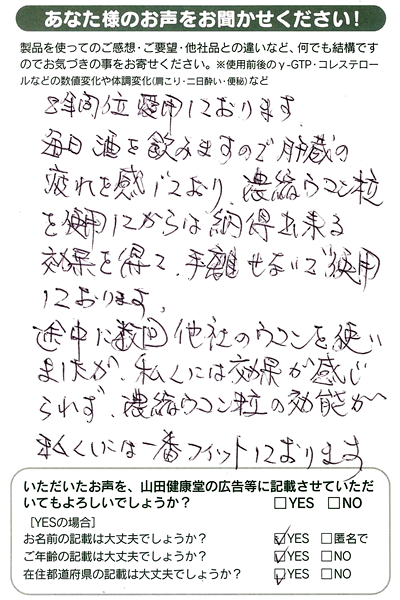 あなた様のお声をお聞かせください!
製品を使ってのご感想・ご要望・他社品との違いなど、何でも結構です
のでお気づきの事をお寄せください。※使用前後のγ-GTP・コレステロー
ルなどの数値変化や体調変化(肩こり・二日酔い・便秘)など
年間位愛用しております。
毎日酒を飲みますので肝臓の
疲れを感じており、濃縮ウコン粒
を使用してからは納得出来る
効果を得て、手離せないで使用
しております。
途中に数回他社のウコンを使い
ましたが、私くには効果が感じ
られず、濃縮ウコン粒の効能が
私くしには一番フィットしております
いただいたお声を、山田健康堂の広告等に記載させていただ
いてもよろしいでしょうか? □YES □NO
[YESの場合]
お名前の記載は大丈夫でしょうか? ☑YES □匿名で
ご年齢の記載は大丈夫でしょうか? ☑YES □NO
在住都道府県の記載は大丈夫でしょうか? ☑YES □NO